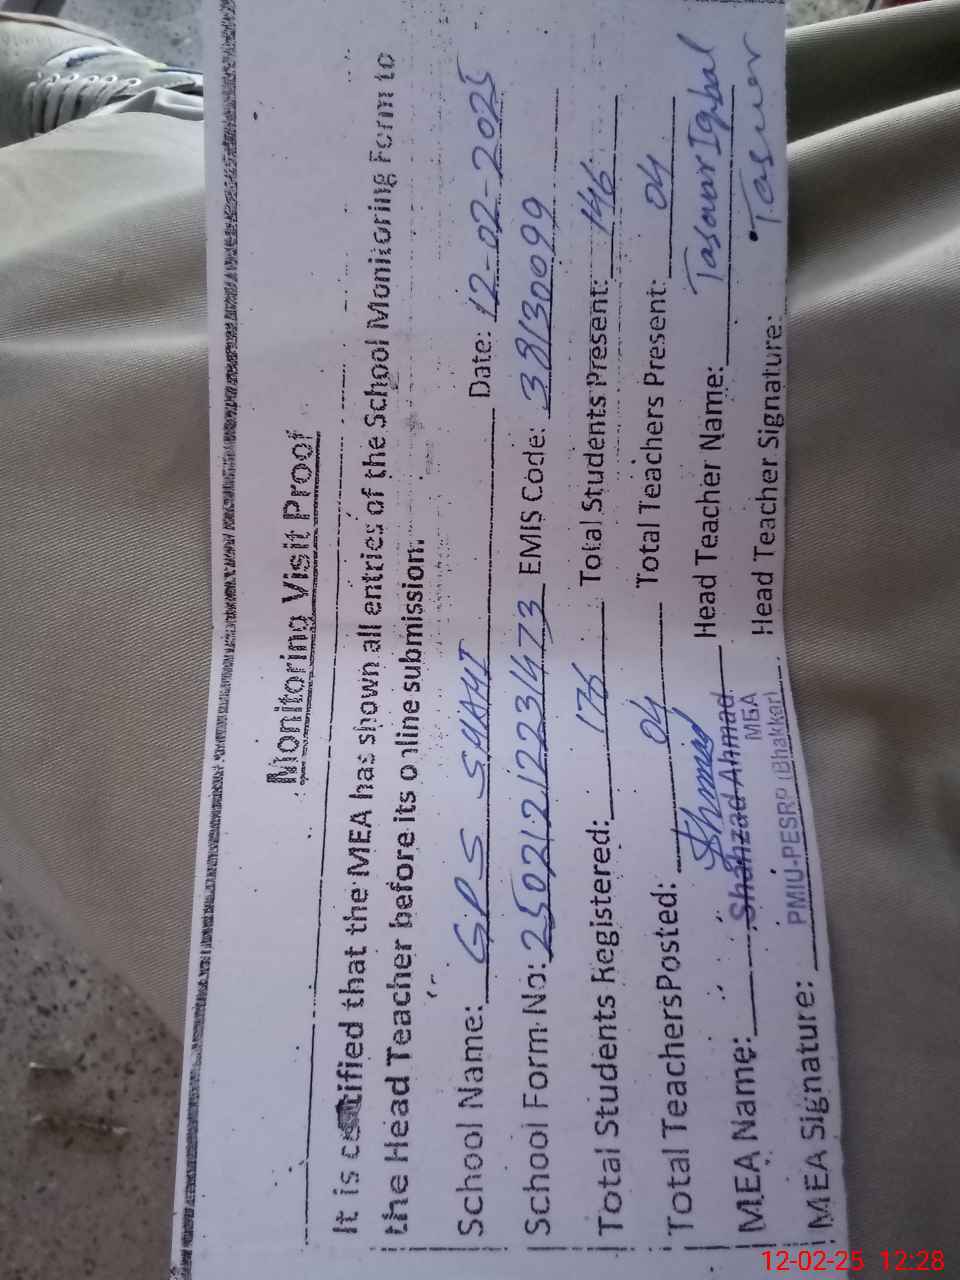 Monitoring Visit Proof
It is certified that the MEA has shown all entries of the School Monitoring Form to
the Head Teacher before its online submission.
School Name: GPS SHAHI Date: 12-02-2025
School Form No: 25021212231473 EMIS Code: 38130099
Total Students Registered: 176 Total Students Present: 146
Total TeachersPosted: 04 Total Teachers Present: 04
MEA Name: Shahzad Ahmad Head Teacher Name: Tasawar Iqbal
MEA
PMIU-PESRP (Bhakkar)
MEA Signature: Head Teacher Signature: Tasuer
12-02-25 12:28